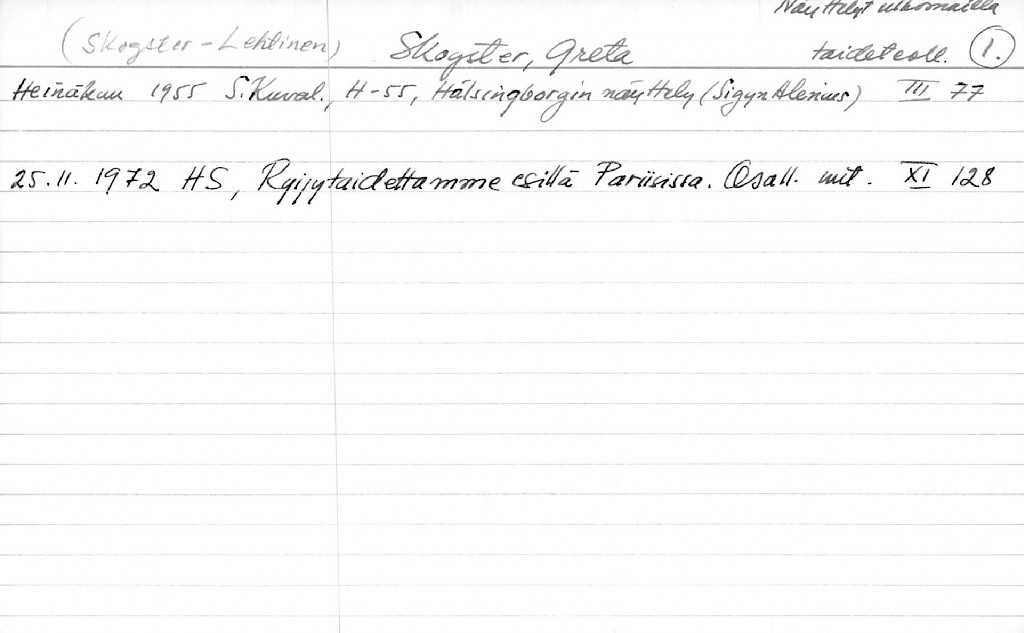 Näyttelyt ulkomailla
(Skogster-Lehtinen) Skogster, Greta taideteoll. 1.
Heinäkuu 1955 S.Kuval., H-55, Hälsingborgin näyttely (Sigyn Alenius) III 77
25.11.1972 HS, Ryijytaidettamme esillä Pariisissa. Osall. mit. XI 128